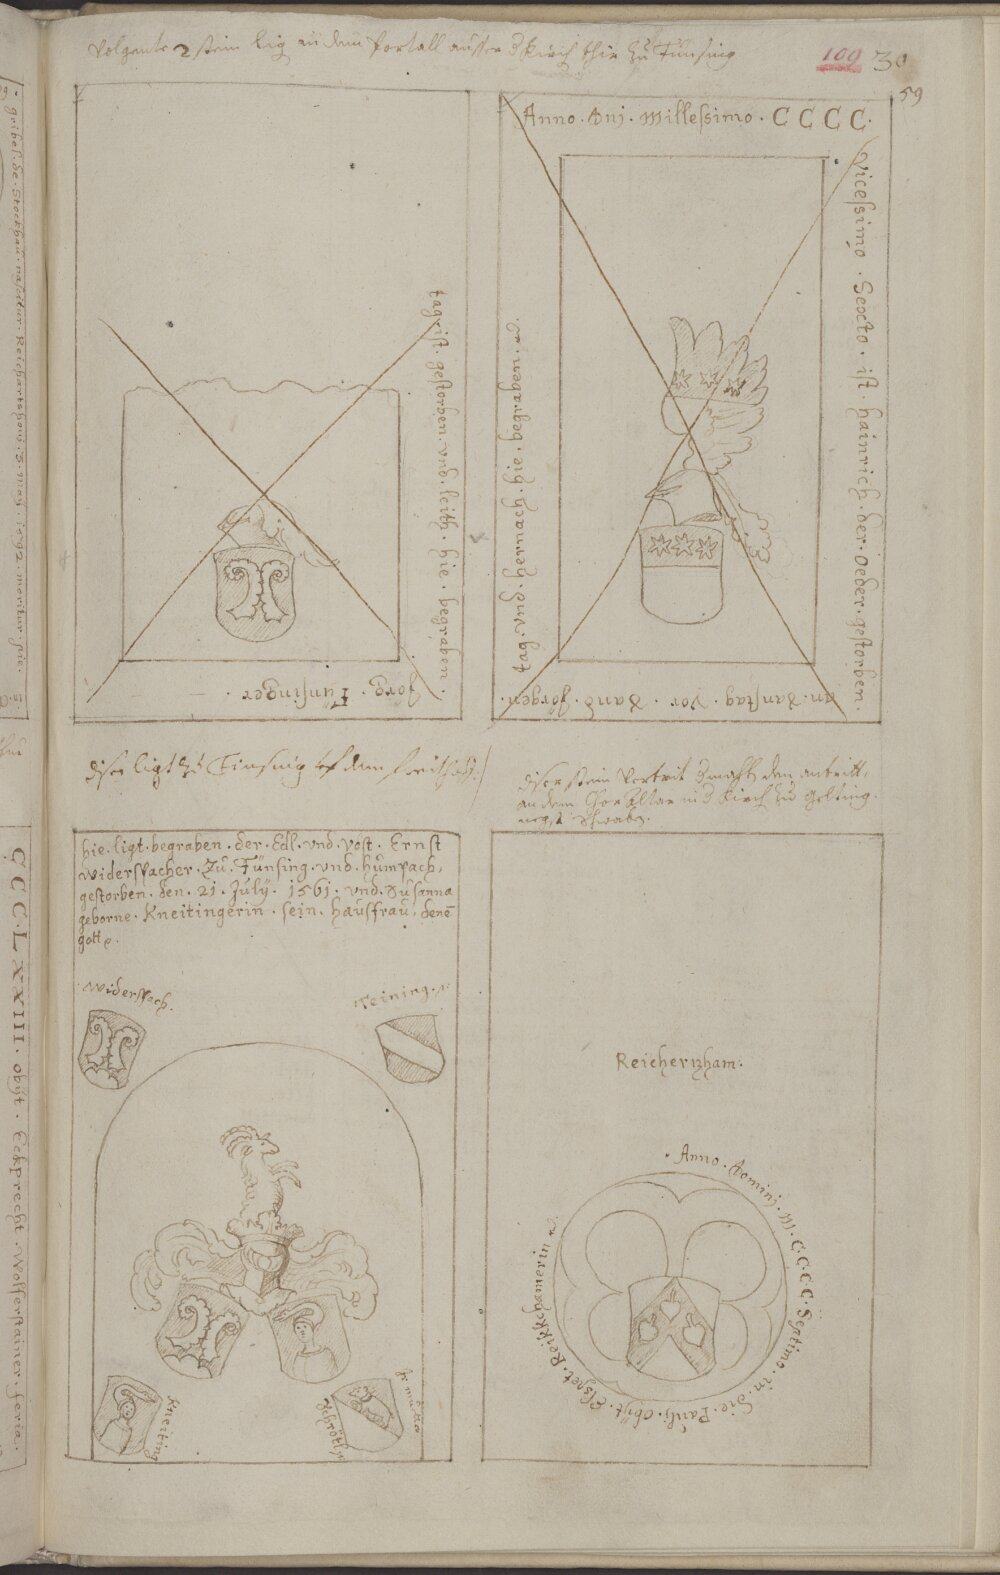 Volgente 2 stein lig an dem Portall ausser d Kirch thir zu Tünsing
100
30
59
tag. ist. gestorben. vnd. leith. hie. begraben.
Jörg. Tünsinger.
Anno. Dnj. Millessimo. C C C C.
Vicessimo. Sexto. ist. hainrich. der. Oeder. gestorben.
an. Sanstag. vor. Sand. Jörgen.
tag. vnd. hernach. hie. begraben.
diser ligt zu Tinsing uf dem freithof.
diser stein
an dem Chor Altar in d Kirch zu Gelting
negst Schwabn.
hie. ligt. begraben. der. Edl. vnd. Vöst. Ernst
Widerspacher. Zu. Tünsing. vnd. humpach,
gestorben. den. 21. July. 1561. vnd. Susanna
geborne. Kneitingerin. sein. hausfrau, denē
gott
Widerspach.
Teining.
Kneiting
Schrötl
Reichertzham.
Anno. Dominj. M. C. C. C. Septimo. in. die. Paulj. obijt. Elspet. Reikkchamerin
gribel. de. Stockhau. nascitur. Reichartshovi. 3. may. 1592. moritur. hie.
C C C. L X X III. obijt. Eckprecht. Wolferstainer. feria.